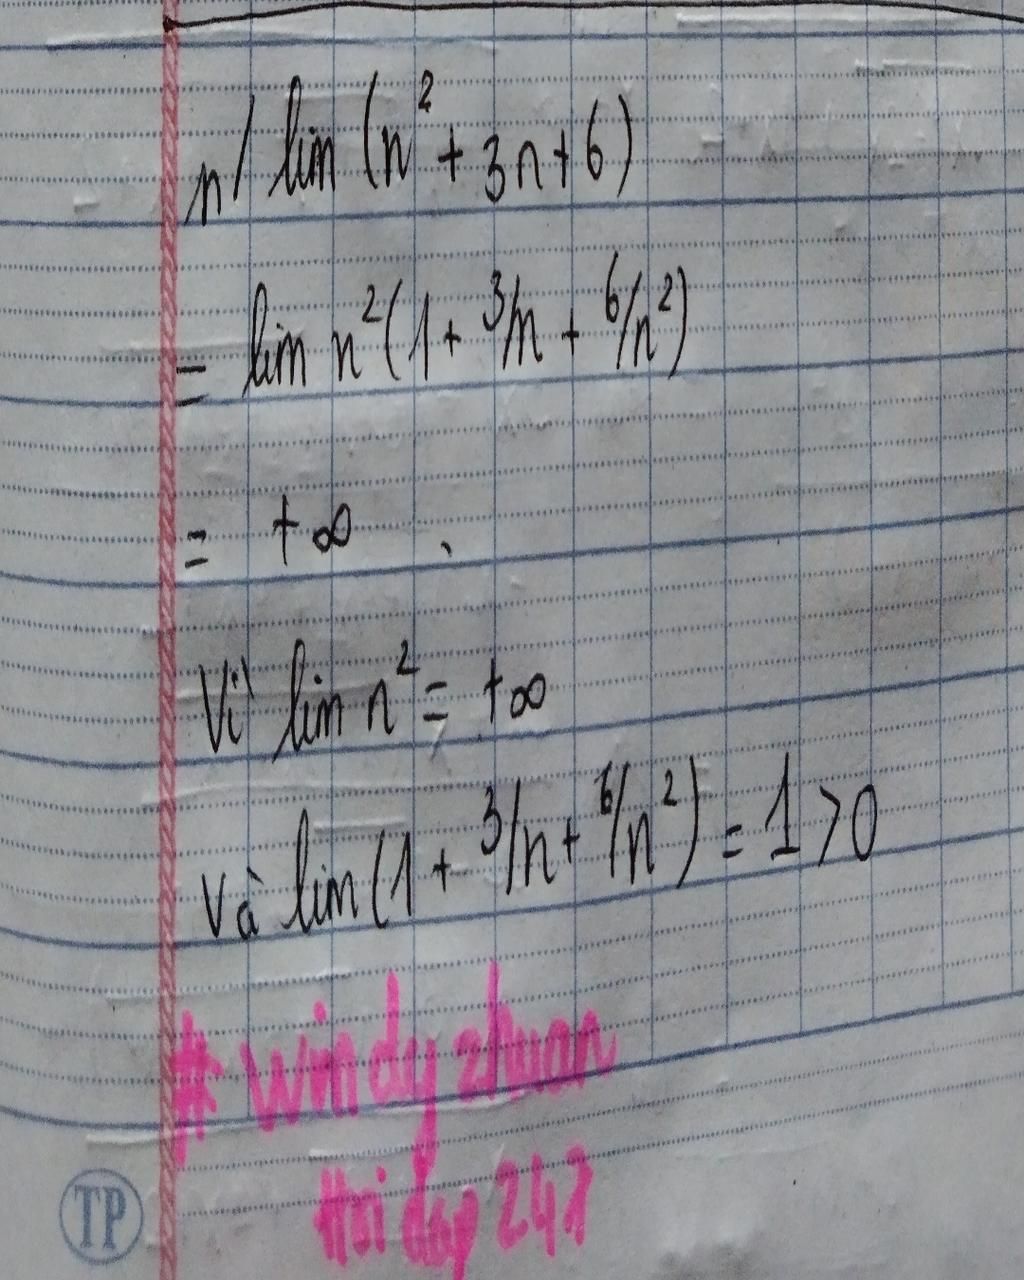 n/ lim (n² + 3n + 6)
= lim n² (1 + 3/n + 6/n²)
= +∞
Vì lim n² = +∞
và lim (1 + 3/n + 6/n²) = 1 > 0
# windy zhuan
Hoi dap 247
TP